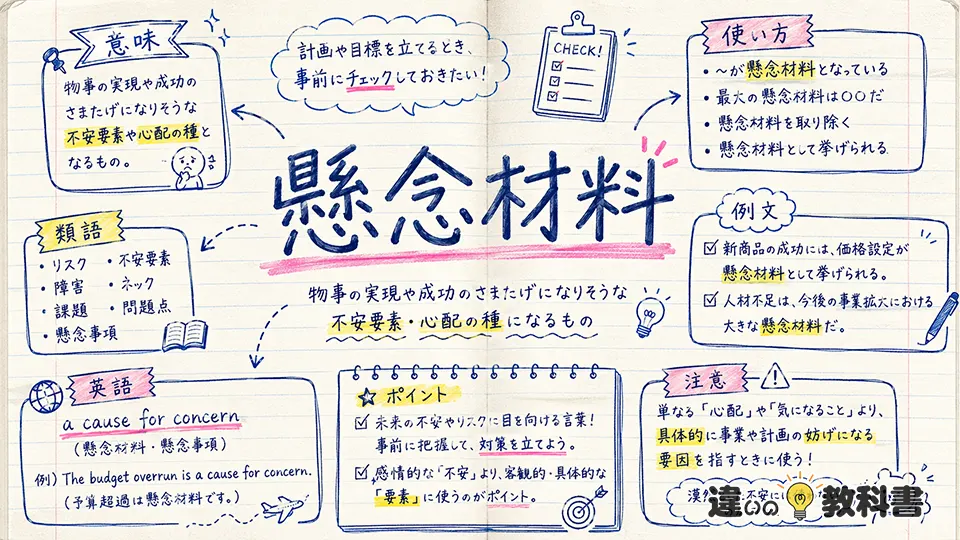 意味
物事の実現や成功の
さまたげになりそうな
不安要素や心配の種と
なるもの。
計画や目標を立てるとき、
事前にチェックしておきたい!
CHECK!
使い方
・〜が懸念材料となっている
・最大の懸念材料は〇〇だ
・懸念材料を取り除く
・懸念材料として挙げられる
懸念材料
物事の実現や成功のさまたげになりそうな
不安要素・心配の種になるもの
類語
・リスク ・不安要素
・障害 ・ネック
・課題 ・問題点
・懸念事項
例文
新商品の成功には、価格設定が
懸念材料として挙げられる。
人材不足は、今後の事業拡大における
大きな懸念材料だ。
英語
a cause for concern
(懸念材料・懸念事項)
例) The budget overrun is a cause for concern.
(予算超過は懸念材料です。)
ポイント
未来の不安やリスクに目を向ける言葉!
事前に把握して、対策を立てよう。
感情的な「不安」より、客観的・具体的な
「要素」に使うのがポイント。
注意
単なる「心配」や「気になること」より、
具体的に事業や計画の妨げになる
要因を指すときに使う!
違いの教科書